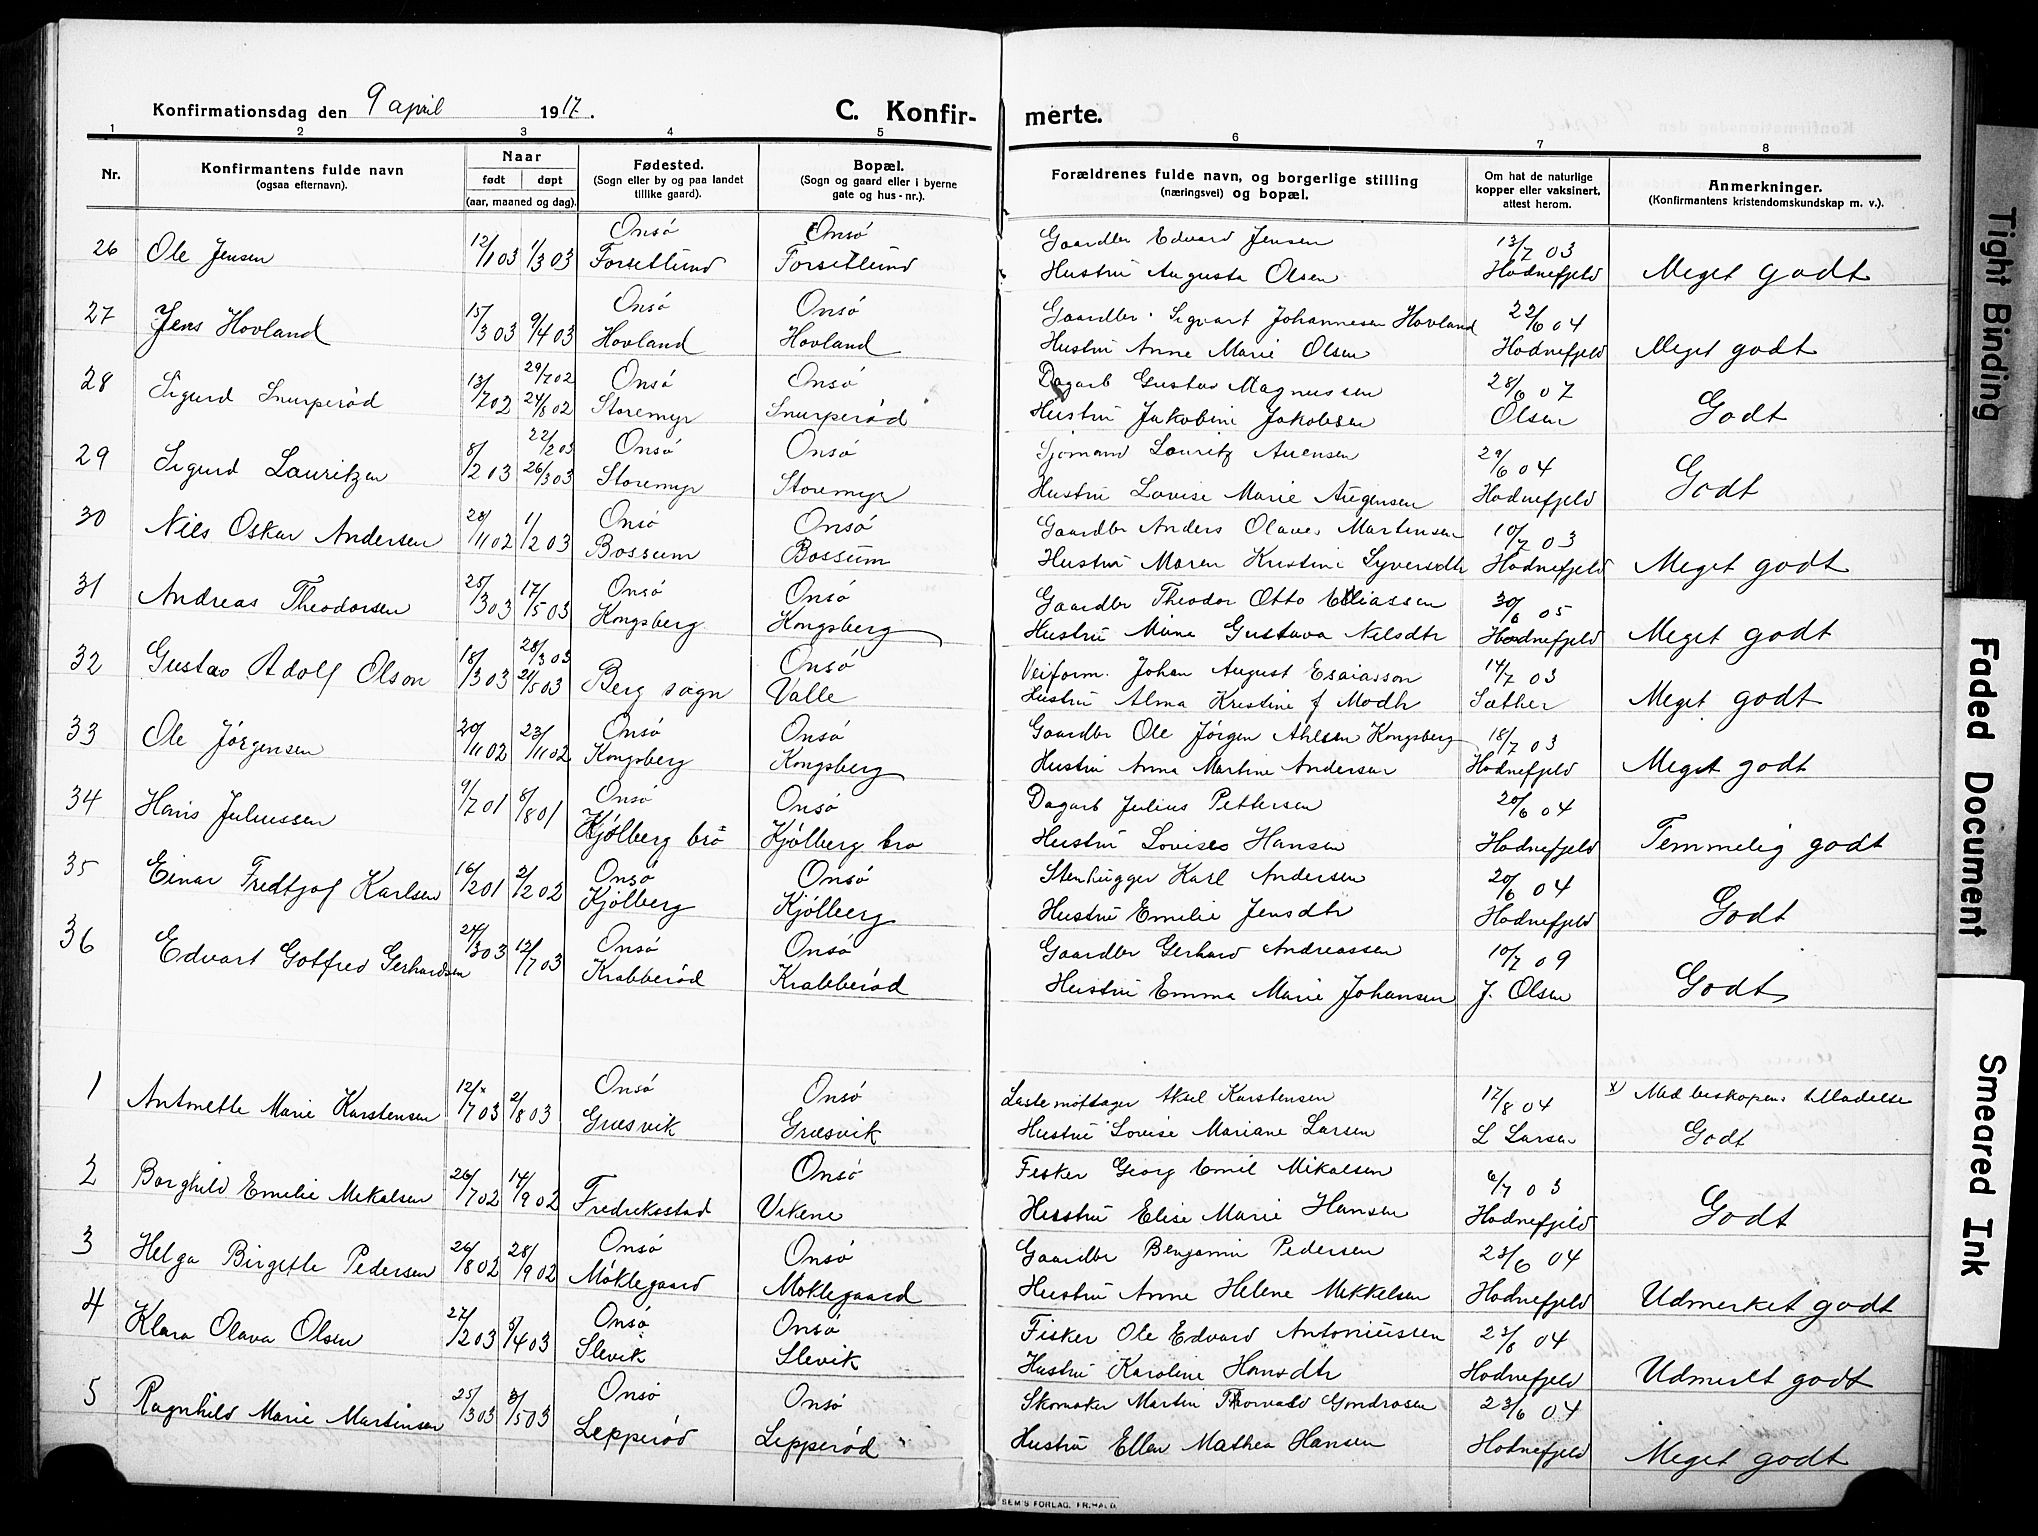 Konfirmationsdag den 9 april 1917.
C. Konfirmerte.
1 2 3 4 5 6 7 8
Nr.
Konfirmantens fulde navn
(ogsaa efternavn).
Naar
født døpt
(aar, maaned og dag).
Fødested.
(Sogn eller by og paa landet
tillike gaard).
Bopæl.
(Sogn og gaard eller i byerne
gate og hus-nr.).
Forældrenes fulde navn, og borgerlige stilling
(næringsvei) og bopæl.
Om hat de naturlige
kopper eller vaksinert,
attest herom.
Anmerkninger.
(Konfirmantens kristendomskundskap m. v.).
26 Ole Jensen 12/1 03 1/3 03 Onsø Forsetlund Onsø Forsetlund Gaardbr Edvard Jensen 13/7 03
Hustru Augusta Olsen Hodnefjeld Meget godt
27 Jens Hovland 15/3 03 9/4 03 Onsø Hovland Onsø Hovland Gaardbr. Sigvart Johannesen Hovland 22/6 04
Hustru Anne Marie Olsen Hodnefjeld Meget godt
28 Sigurd Snurperød 13/7 02 29/7 02 24/8 02 Onsø Storemyr Onsø Snurperød Dagarb Gustav Magnussen 28/6 07
Hustru Jakobine Jakobsen Olsen Godt
29 Sigurd Lauritzen 8/2 03 22/2 03 26/3 03 Onsø Storemyr Onsø Storemyr Sjømand Lauritz Auensen 29/6 04
Hustru Lovise Marie Augensen Hodnefjeld Godt
30 Nils Oskar Andersen 28/11 02 1/2 03 Onsø Bossum Onsø Bossum Gaardbr Anders Olaves Martinsen 10/7 03
Hustru Maren Kristine Syversdtr Hodnefjeld Meget godt
31 Andreas Theodorsen 25/3 03 17/5 03 Onsø Kongsberg Onsø Kongsberg Gaardbr Theodor Otto Eliassen 30/6 05
Hustru Mine Gustava Nilsdtr Hodnefjeld Meget godt
32 Gustav Adolf Olson 18/3 03 28/3 03 21/5 03 Berg sogn Onsø Valle Veiform. Johan August Esaiasson 14/7 03
Hustru Alma Kristine f Modh Sæther Meget godt
33 Ole Jørgensen 20/11 02 23/11 02 Onsø Kongsberg Onsø Kongsberg Gaardbr Ole Jørgen Ahlsen Kongsberg 18/7 03
Hustru Anna Martine Andersen Hodnefjeld Meget godt
34 Hans Juliussen 9/7 01 8/8 01 Onsø Kjølberg bro Onsø Kjølberg bro Dagarb Julius Pettersen 20/6 04
Hustru Lovise Hansen Hodnefjeld Temmelig godt
35 Einar Fredtjof Karlsen 16/12 01 2/2 02 Onsø Kjølberg Onsø Kjølberg Stenhugger Karl Andersen 20/6 04
Hustru Emilie Jensdtr Hodnefjeld Godt
36 Edvart Gotfred Gerhardsen 24/3 03 12/7 03 Onsø Krabberød Onsø Krabberød Gaardbr Gerhard Andreassen 10/7 09
Hustru Emma Marie Johansen J. Olsen Godt
1 Antonette Marie Karstensen 12/7 03 x 2/8 03 Onsø Græsvik Onsø Græsvik Lastemottager Aksel Karstensen 17/8 04 x) Med biskopens tilladelse
Hustru Lovise Mariane Larsen L Larsen Godt
2 Borghild Emelie Mikalsen 26/7 02 14/9 02 Fredriksstad Onsø Vikene Fisker Georg Emil Mikalsen 6/7 03
Hustru Elise Marie Hansen Hodnefjeld Godt
3 Helga Birgitte Pedersen 26/8 02 28/9 02 Onsø Møklegaard Onsø Møklegaard Gaardbr Benjamin Pedersen 23/6 04
Hustru Anne Helene Mikkelsen Hodnefjeld Udmerket godt
4 Klara Olava Olsen 27/12 03 5/4 03 Onsø Slevik Onsø Slevik Fisker Ole Edvard Antoniussen 23/6 04
Hustru Karoline Hansdtr Hodnefjeld Udmerkt godt
5 Ragnhild Marie Martinsen 25/3 03 3/5 03 Onsø Lepperød Onsø Lepperød Skomaker Martin Thorvald Gundrosen 23/6 04
Hustru Ellen Mathea Hansen Hodnefjeld Meget godt
SEM'S FORLAG, FR.HALD.
Tight Binding
Faded Document
Smeared Ink